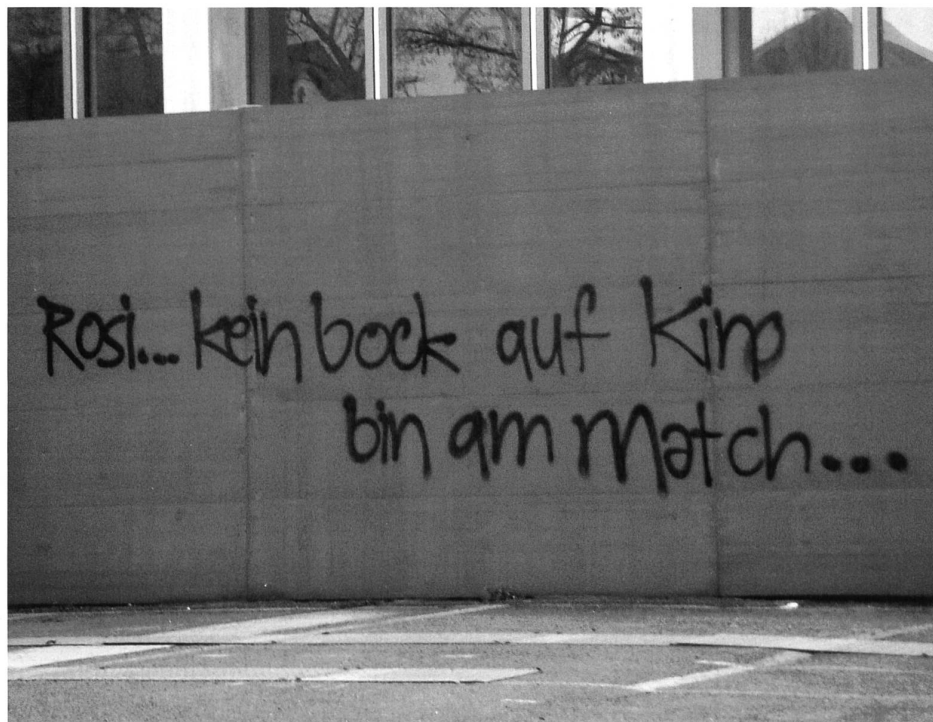 Rosi... kein bock auf Kino
bin am Match...